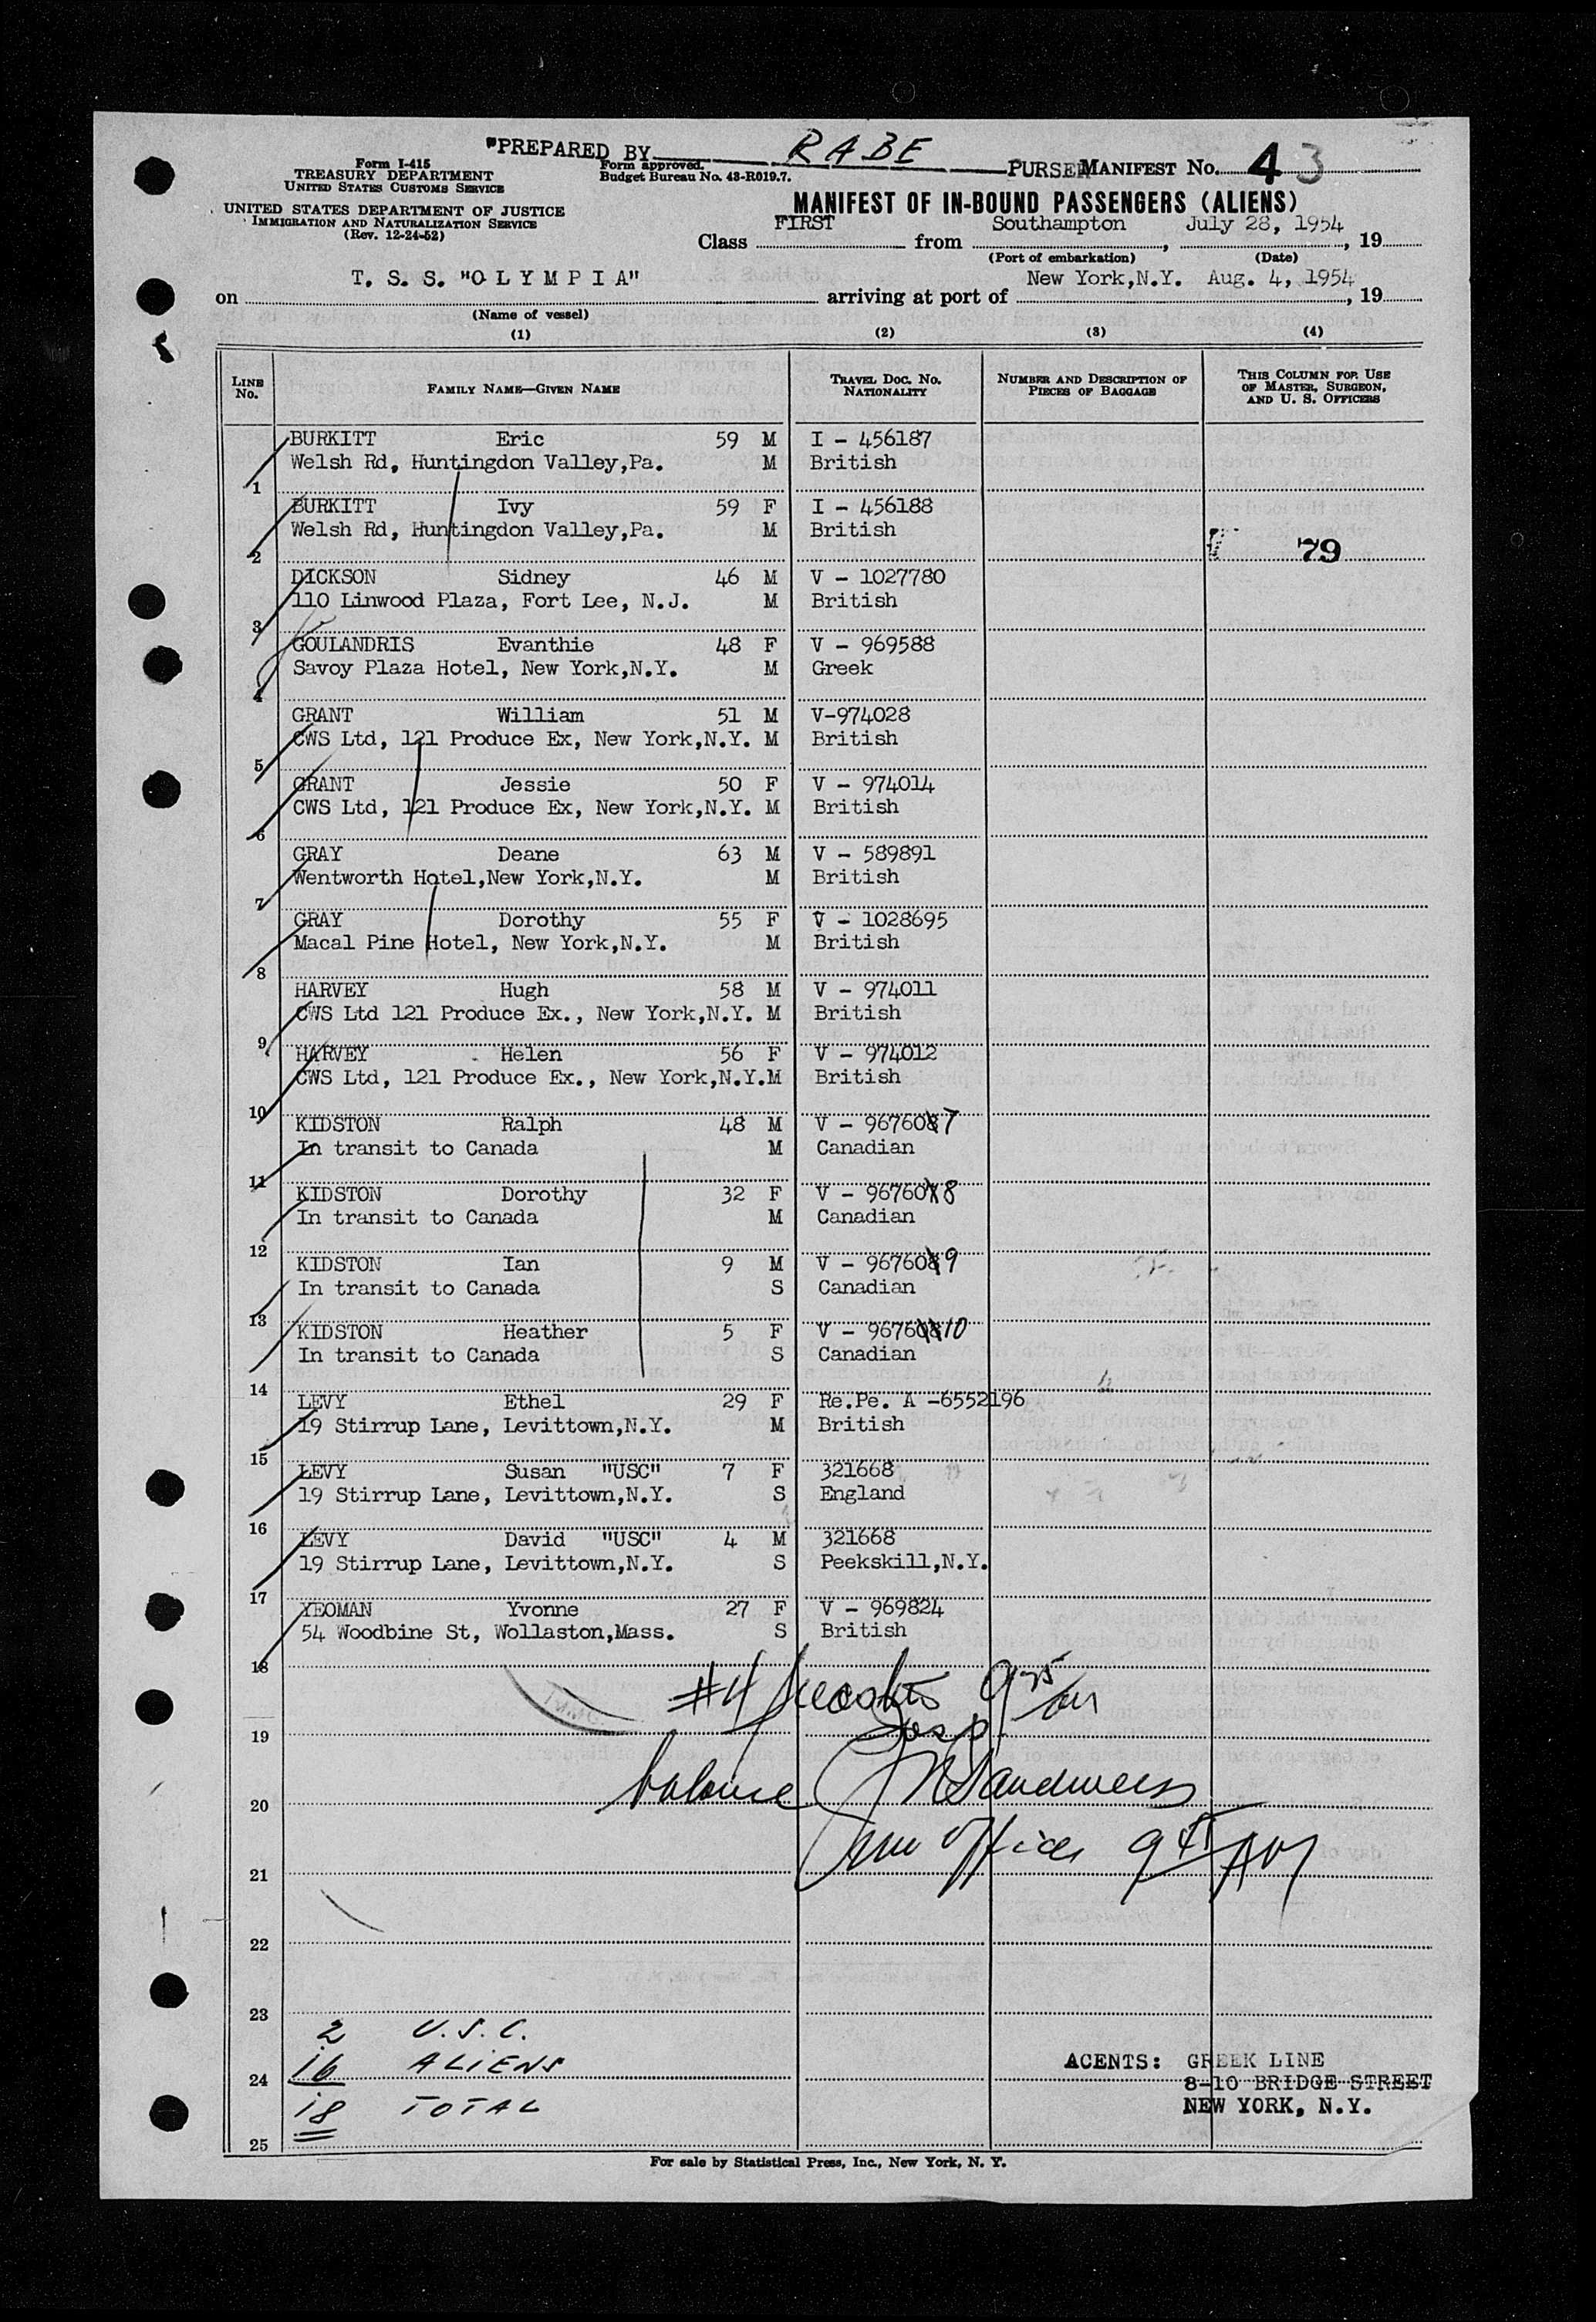 "PREPARED BY RABE PURSER
Form I-415
TREASURY DEPARTMENT
UNITED STATES CUSTOMS SERVICE
Form approved.
Budget Bureau No. 43-R019.7.
MANIFEST No. 43
UNITED STATES DEPARTMENT OF JUSTICE
IMMIGRATION AND NATURALIZATION SERVICE
(Rev. 12-24-52)
MANIFEST OF IN-BOUND PASSENGERS (ALIENS)
Class FIRST from Southampton, July 28, 1954, 19
(Port of embarkation) (Date)
on T. S. S. "O L Y M P I A" arriving at port of New York,N.Y. Aug. 4, 1954, 19
(Name of vessel)
(1) (2) (3) (4)
LINE No. FAMILY NAME—GIVEN NAME TRAVEL DOC. NO. NATIONALITY NUMBER AND DESCRIPTION OF PIECES OF BAGGAGE THIS COLUMN FOR USE OF MASTER, SURGEON, AND U. S. OFFICERS
BURKITT Eric 59 M I - 456187
Welsh Rd, Huntingdon Valley,Pa. M British
1
BURKITT Ivy 59 F I - 456188
Welsh Rd, Huntingdon Valley,Pa. M British
2 79
DICKSON Sidney 46 M V - 1027780
110 Linwood Plaza, Fort Lee, N.J. M British
3
GOULANDRIS Evanthie 48 F V - 969588
Savoy Plaza Hotel, New York,N.Y. M Greek
4
GRANT William 51 M V-974028
CWS Ltd, 121 Produce Ex, New York,N.Y. M British
5
GRANT Jessie 50 F V - 974014
CWS Ltd, 121 Produce Ex, New York,N.Y. M British
6
GRAY Deane 63 M V - 589891
Wentworth Hotel,New York,N.Y. M British
7
GRAY Dorothy 55 F V - 1028695
Macal Pine Hotel, New York,N.Y. M British
8
HARVEY Hugh 58 M V - 974011
CWS Ltd 121 Produce Ex., New York,N.Y. M British
9
HARVEY Helen 56 F V - 974012
CWS Ltd, 121 Produce Ex., New York,N.Y.M British
10
KIDSTON Ralph 48 M V - 9676087
In transit to Canada M Canadian
11
KIDSTON Dorothy 32 F V - 967608
In transit to Canada M Canadian
12
KIDSTON Ian 9 M V - 9676089
In transit to Canada S Canadian
13
KIDSTON Heather 5 F V - 96760810
In transit to Canada S Canadian
14
LEVY Ethel 29 F Re.Pe. A -6552196
19 Stirrup Lane, Levittown,N.Y. M British
15
LEVY Susan "USC" 7 F 321668
19 Stirrup Lane, Levittown,N.Y. S England
16
LEVY David "USC" 4 M 321668
19 Stirrup Lane, Levittown,N.Y. S Peekskill,N.Y.
17
YEOMAN Yvonne 27 F V - 969824
54 Woodbine St, Wollaston,Mass. S British
18
#4
19 Insp
balance
20
Imm Officer
21
22
23
2 U.S.C.
16 ALIENS
24
18 TOTAL
25
AGENTS: GREEK LINE
8-10 BRIDGE STREET
NEW YORK, N.Y.
For sale by Statistical Press, Inc., New York, N. Y.